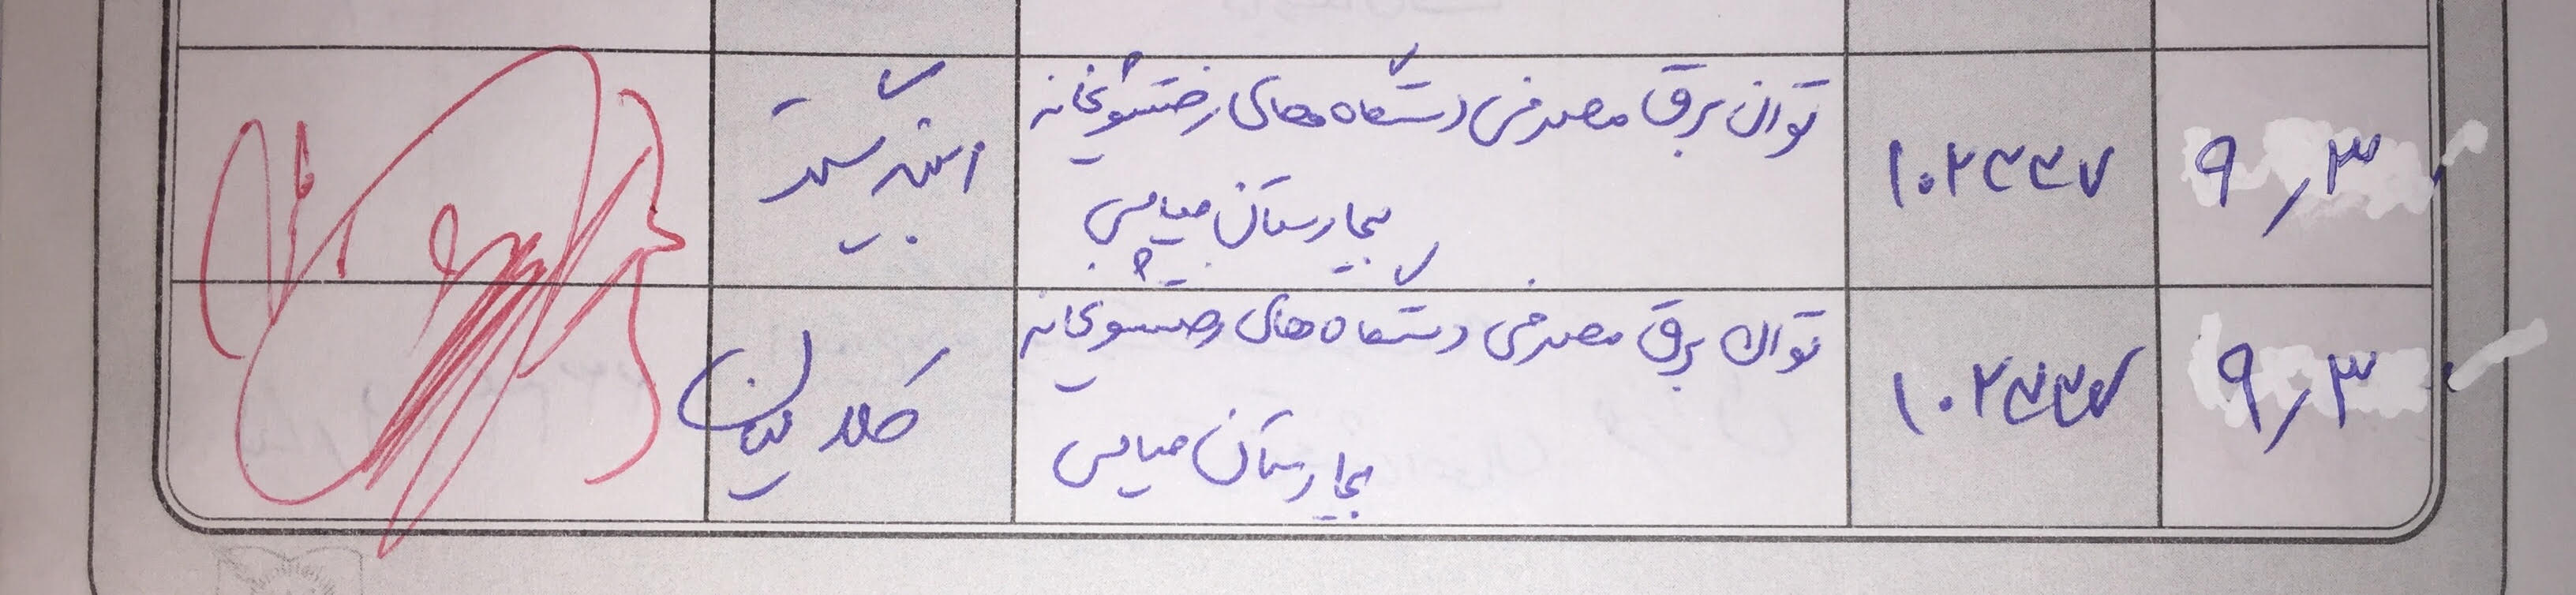 ۹/۳
۱۰۲۳۳۷
توان برق مصرفی دستگاه های رختشویخانه
بیمارستان میامی
۹/۳
۱۰۲۳۳۷
توان برق مصرفی دستگاه های رختشویخانه
بیمارستان میامی
کلاتیان